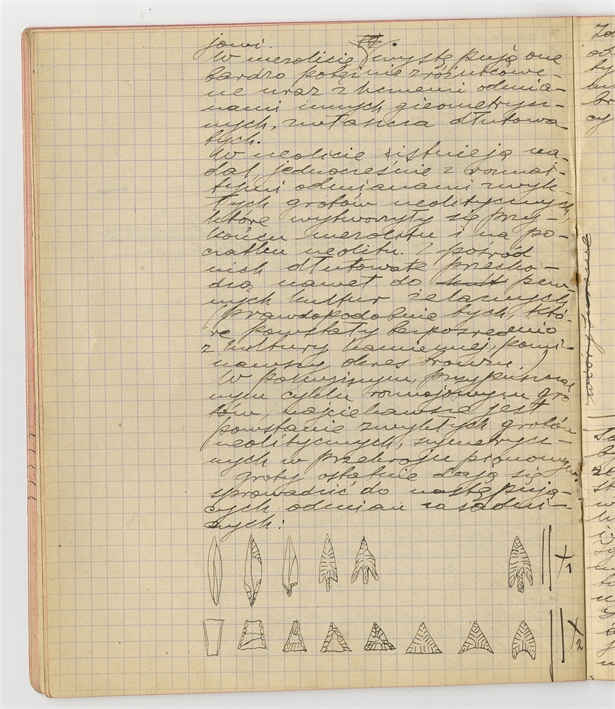 jowi.
W mezolicie występują one
bardzo potężnie zróżnicowa-
ne wraz z licznemi odmia-
nami innych gieometrycz-
nych, zwłaszcza dłutowa
tych.
W neolicie istnieją na-
dal jednocześnie z rozmai-
tymi odmianami zwyk-
łych grotów neolitycznych
które wytworzyły się przy
końcu mezolitu i na po-
czątku neolitu. (pośród
nich dłutowate przecho-
dzą nawet do pew
nych kultur żelaznych
prawdopodobnie tych, któ-
re powstały bezpośrednio
z kultury kamiennej, pomi-
nąwszy okres bronzu.)
W powyższym, przypuszczal
nym cyklu rozwojowym gro
tów, najciekawsze jest
powstanie zwykłych grotów
neolitycznych, symetrycz-
nych w przekroju pionowym.
groty ostatnie dają się
sprowadzić do następują-
cych odmian zasadni-
czych:
x1
x2